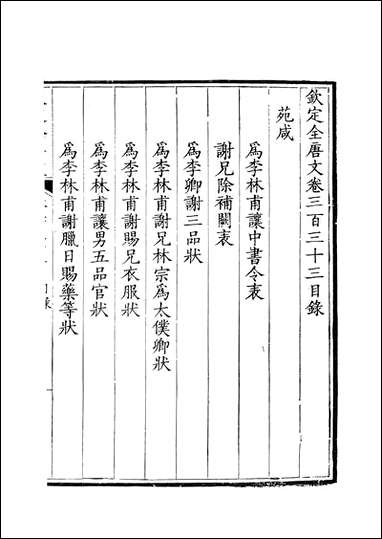 欽定全唐文卷三百三十三目錄
苑咸
爲李林甫讓中書令表
謝兄除補闕表
爲李卿謝三品狀
爲李林甫謝兄林宗爲太僕卿狀
爲李林甫謝賜兄衣服狀
爲李林甫讓男五品官狀
爲李林甫謝臘日賜藥等狀
目錄